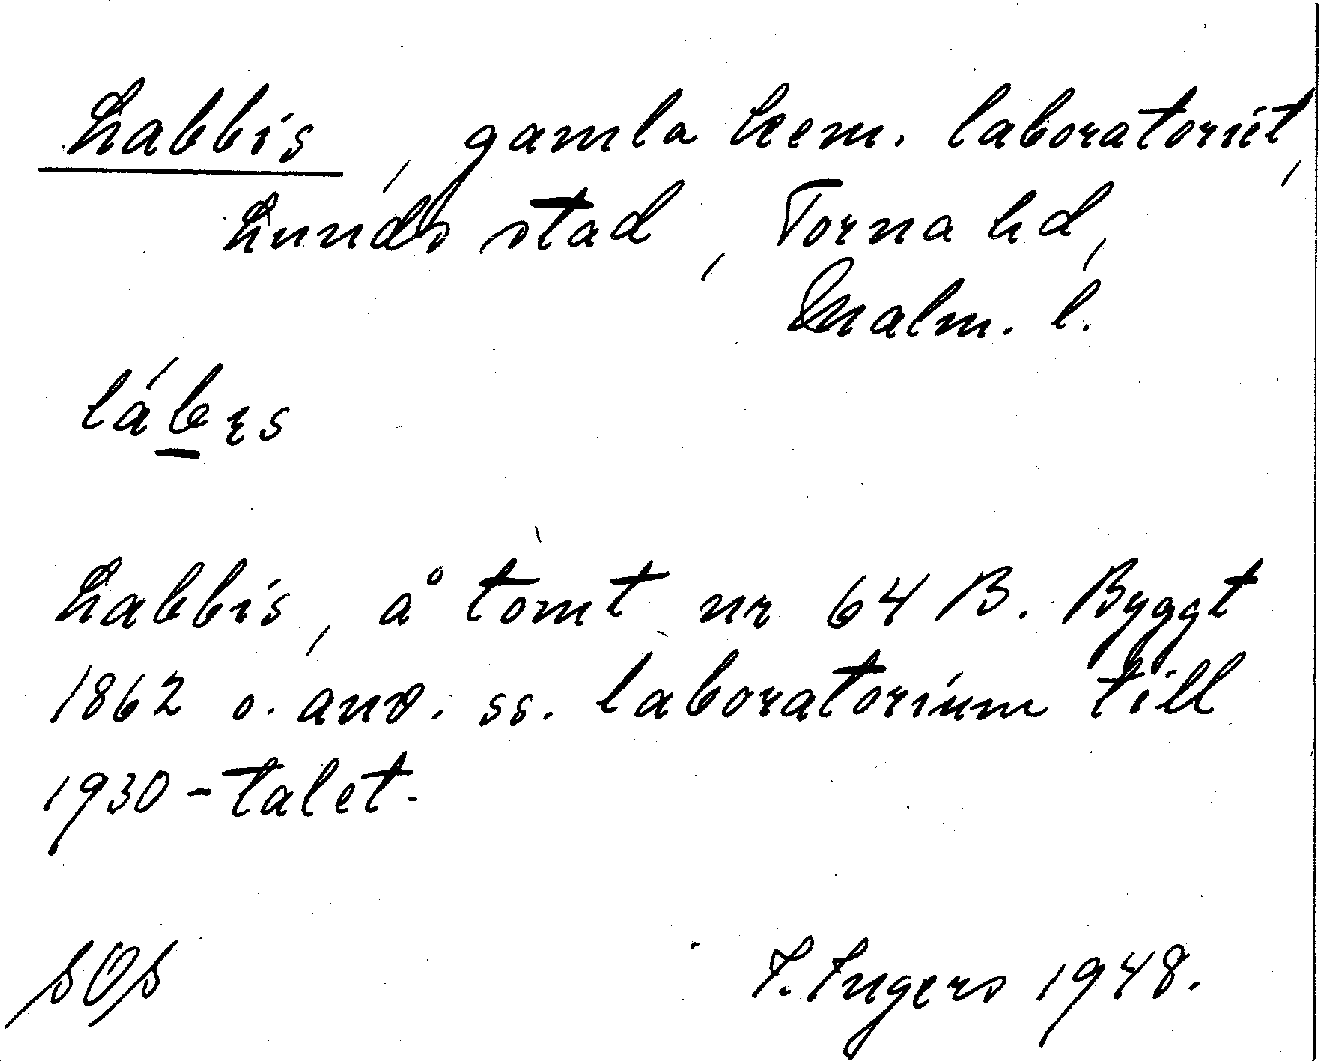 Labbis, gamla kem. laboratoriet,
Lunds stad, Torna hd,
Malm. l.
Labbis, å tomt nr 64 B. Byggt
1862 o. anv. ss. laboratorium till
1930-talet.
SOS I. Ingers 1948.